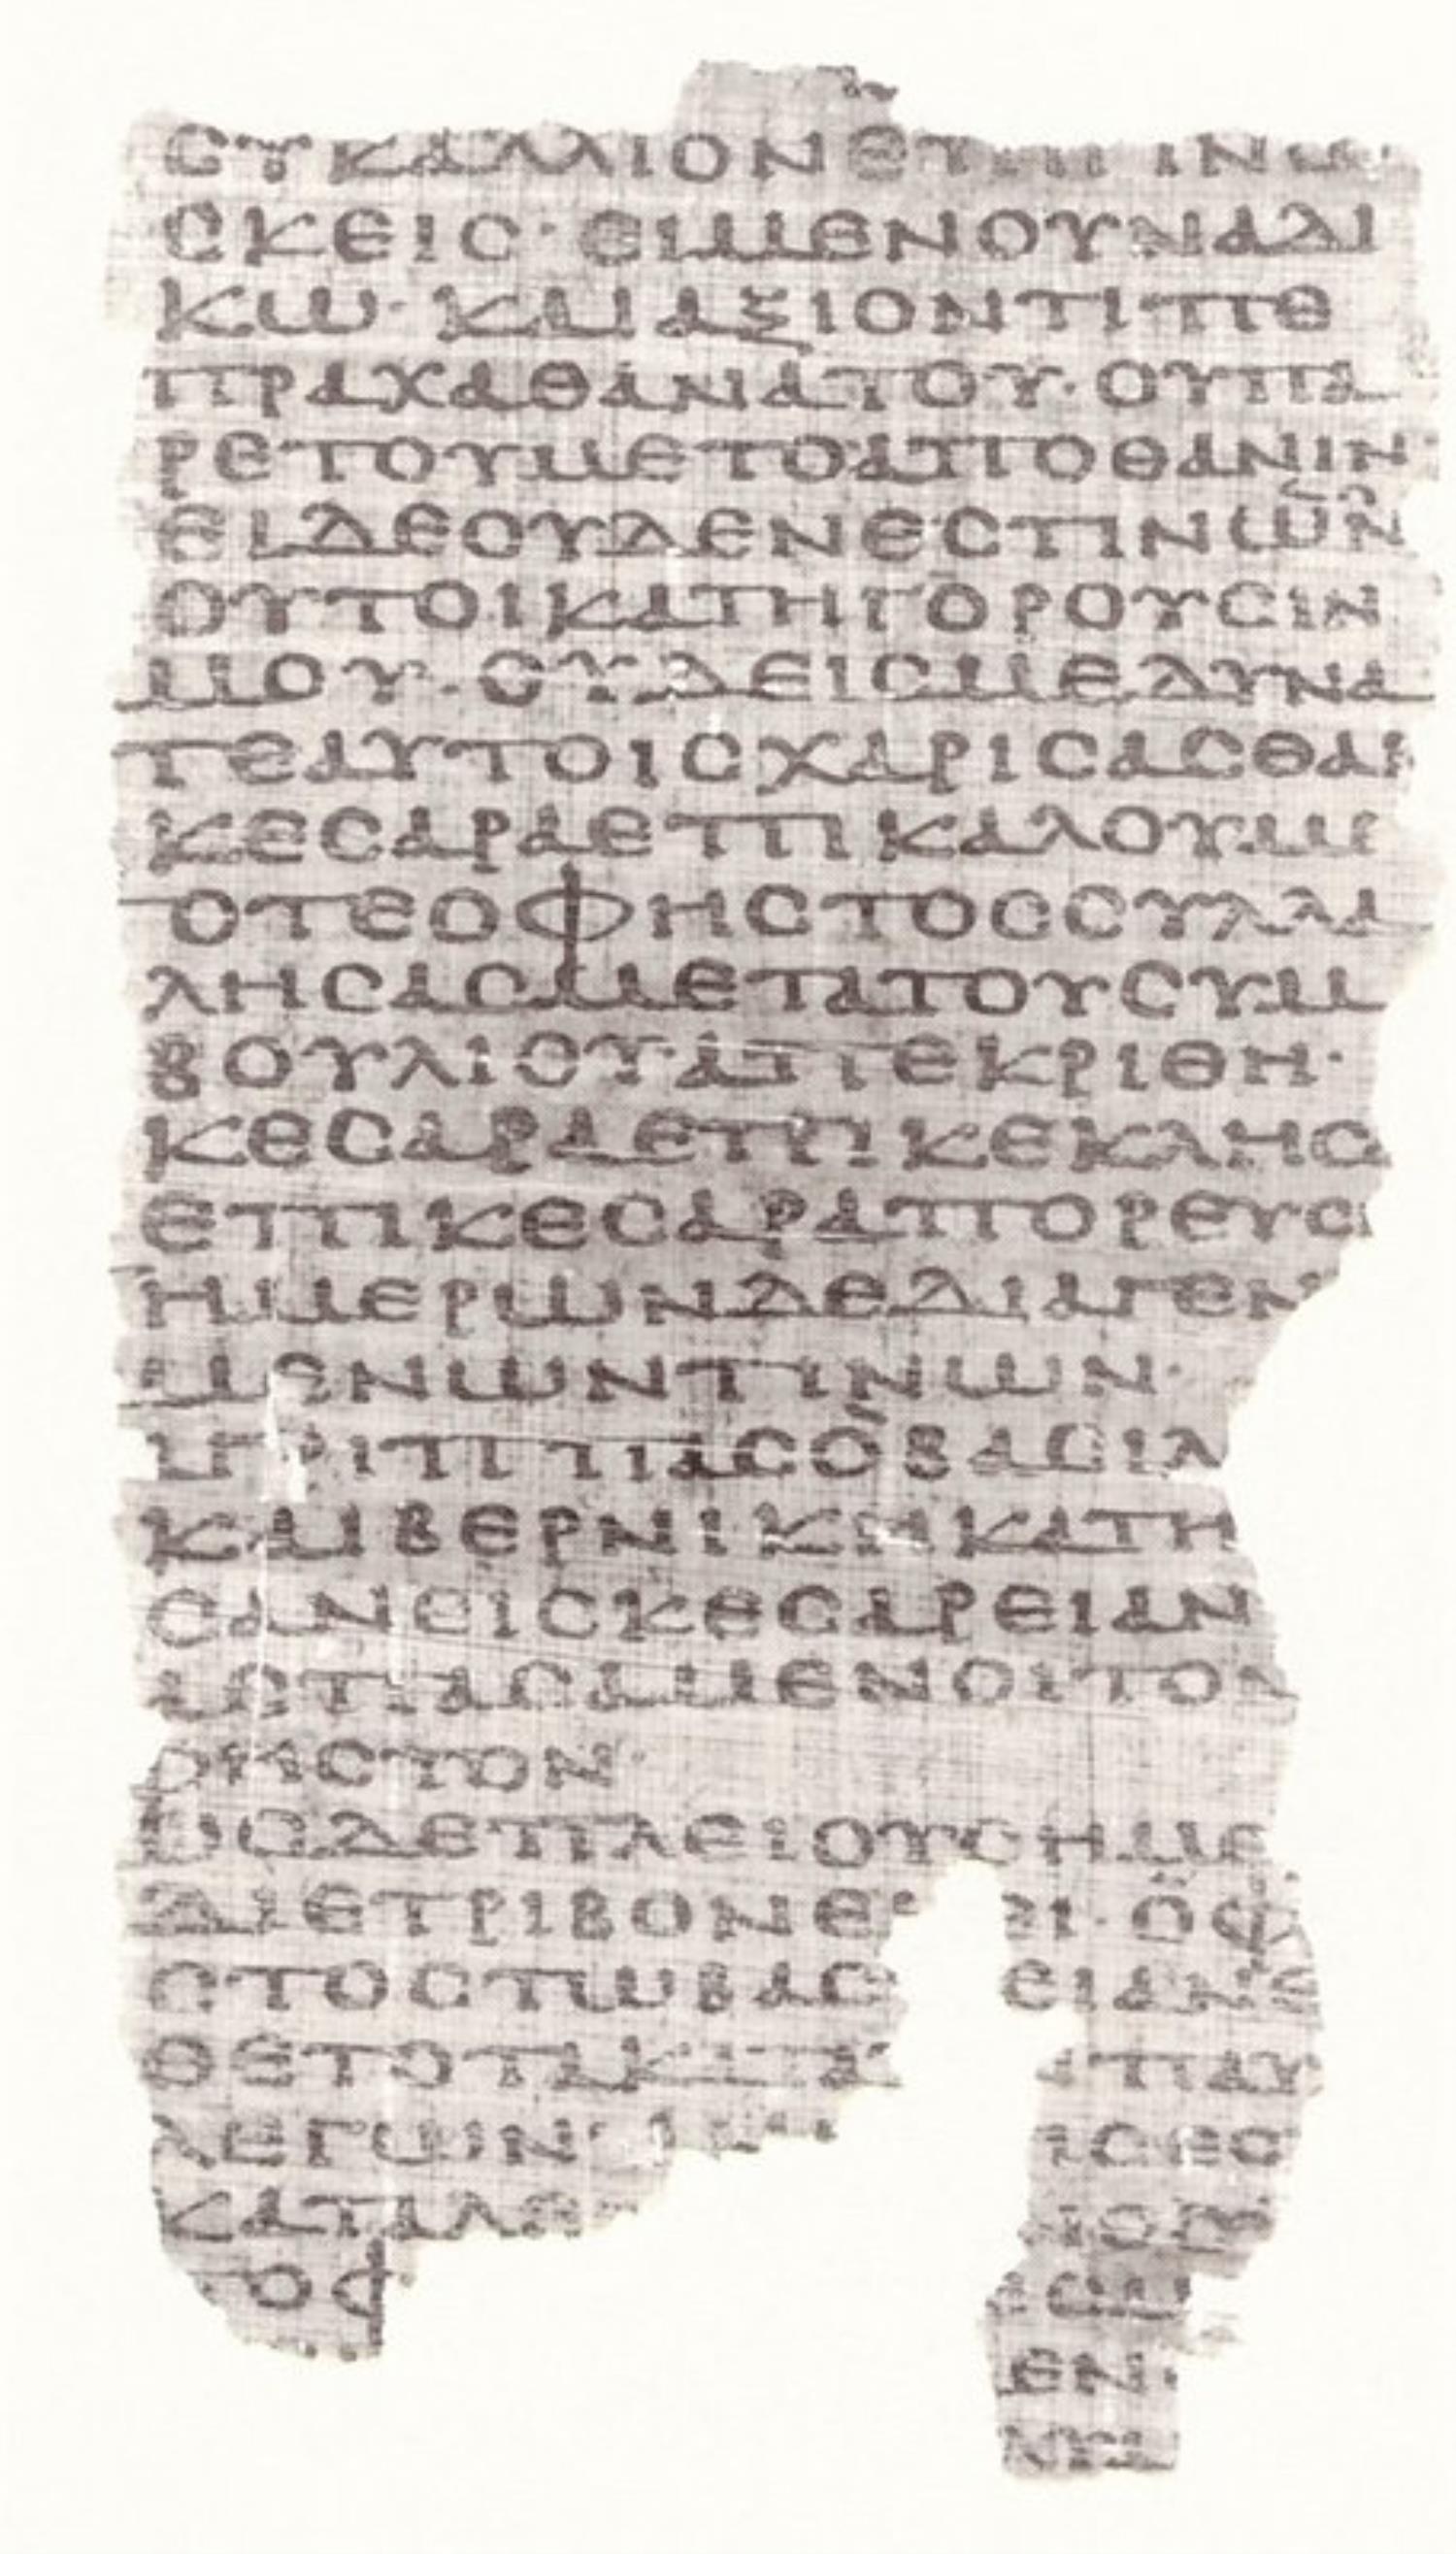 ΣΥΚΑΛΛΙΟΝΕΠΙΓΙΝΩ
ΣΚΕΙΣ· ΕΙΜΕΝΟΥΝΑΔΙ
ΚΩ· ΚΑΙΑΞΙΟΝΤΙΠΕ
ΠΡΑΧΑΘΑΝΑΤΟΥ· ΟΥΠΑ
ΡΕΤΟΥΜΕΤΟΑΠΟΘΑΝΙΝ
ΕΙΔΕΟΥΔΕΝΕΣΤΙΝΩΝ
ΟΥΤΟΙΚΑΤΗΓΟΡΟΥΣΙΝ
ΜΟΥ· ΟΥΔΕΙΣΜΕΔΥΝΑ
ΤΕΑΥΤΟΙΣΧΑΡΙΣΑΣΘΑΙ
ΚΕΣΑΡΑΕΠΙΚΑΛΟΥΜΕ
ΤΟΤΕΟΦΗΣΤΟΣΣΥΛΛΑ
ΛΗΣΑΣΜΕΤΑΤΟΥΣΥΜ
ΒΟΥΛΙΟΥΑΠΕΚΡΙΘΗ·
ΚΕΣΑΡΑΕΠΙΚΕΚΛΗΣ
ΕΠΙΚΕΣΑΡΑΠΟΡΕΥΣ
ΗΜΕΡΩΝΔΕΔΙΑΓΕΝ
ΜΕΝΩΝΤΙΝΩΝ·
ΑΓΡΙΠΠΑΣΟΒΑΣΙΛ
ΚΑΙΒΕΡΝΙΚΗΚΑΤΗ
ΣΑΝΕΙΣΚΕΣΑΡΕΙΑΝ
ΑΣΠΑΣΑΜΕΝΟΙΤΟΝ
ΦΗΣΤΟΝ·
ΩΣΔΕΠΛΕΙΟΥΣΗΜΕ
ΔΙΕΤΡΙΒΟΝΕ ΕΙ· ΟΦ
ΣΤΟΣΤΩΒΑΣ ΕΙΑΝΕ
ΘΕΤΟΤΑΚΑΤΑ ΠΑΥ
ΛΕΓΩΝ ΙΣΕΣ
ΚΑΤΑΛΕ ΙΟΣ
ΤΟΦ
ΕΝ·